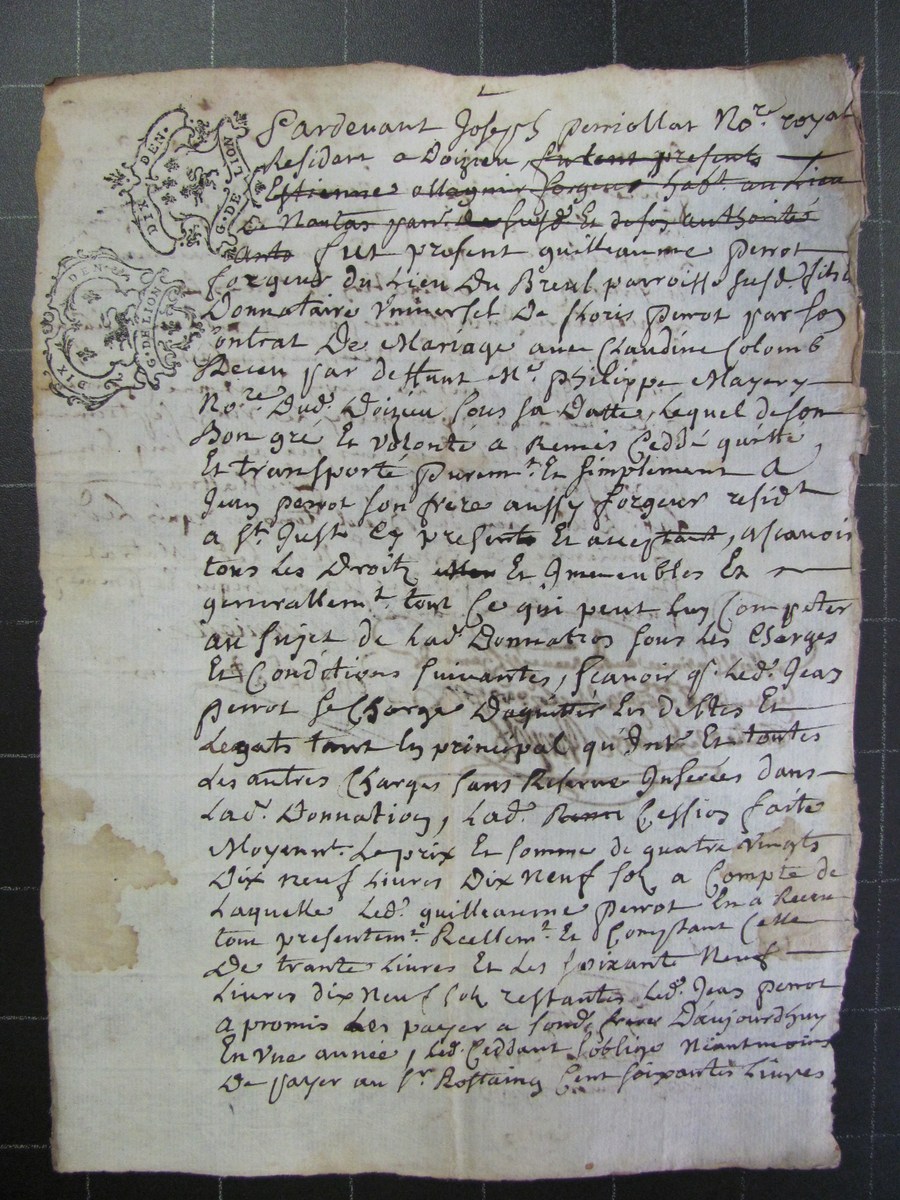 DIX DEN.
G. DE LION
DIX DEN.
G. DE LION
Pardevant Joseph perriollat No.re royal
Resident a Doizieu furent presents
Estienne allegnir forgeur hab.t au Lieu
et de son authorité
fut present guilleaume perrot
forgeur du Lieu Du Breul parroisse susd.e fils
Donnataire Vniversel De floris perrot par son
Contrat De Mariage avec Claudine Colomb
Receu par deffunt M.e philippe Mayery
No.re Dud. Doizieu sous sa Datte, Lequel de son
Bon gré Et volonté a Remis Ceddé quitté
Et transporté purem.t Et simplement a
Jean perrot son frere aussy forgeur resid.t
a S.t Just Icy present Et acceptant, ascavoir
tous les Droitz Et Immeubles Et
generallem.t tout Ce qui peut luy Competer
au sujet de Lad. Donnation sous les Charges
Et Conditions suivantes, scavoir q. Led. Jean
perrot se Charge Daquitter les debtes Et
Legats tant En principal qu'Intr. Et toutes
Les autres Charges sans Reserve Inserées dans
Lad. Donnation, Lad. Cession faite
Moyen.nt Le prix Et somme de quatre vingts
Dix neuf Livres Dix Neuf sol a Compte de
Laquelle Led. guilleaume perrot En a Receu
tout presentem.t Reellem.t Et Comptant Celle
De trante Livres Et Les soixante Neuf
Livres dix Neuf sol restantes Led. Jean perrot
a promis Les payer a sond. frere D'aujourdhuy
En vne année, Led. Ceddant s'oblige Neantmoins
De payer au S.r Rostaing Cent soixantes Livres